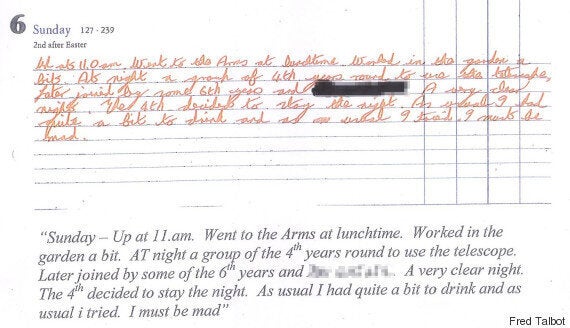 6 Sunday 127 · 239
2nd after Easter
Up at 11.0am. Went to the Arms at lunchtime Worked in the garden a
bit. At night a group of 4th years round to use the telescope,
later joined by some 6th years and A very clear
night. The 4th decided to stay the night. As usual I had
quite a bit to drink and as usual I tried. I must be
mad.
“Sunday – Up at 11.am. Went to the Arms at lunchtime. Worked in the
garden a bit. AT night a group of the 4th years round to use the telescope.
Later joined by some of the 6th years and A very clear night.
The 4th decided to stay the night. As usual I had quite a bit to drink and as
usual i tried. I must be mad”
Fred Talbot